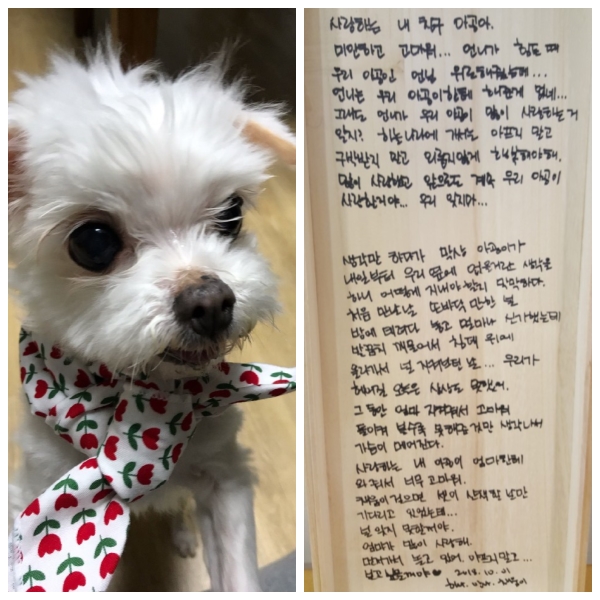 사랑하는 내 친구 아공아.
미안하고 고마워... 언니가 힘들 때
우리 아공인 언닐 위로해줬는데...
언니는 우리 아공이한테 해준게 없네...
그래도 언니가 우리 아공이 많이 사랑하는거
알지? 하늘나라에 가서는 아프지 말고
구박받지 말고 외롭지않게 행복해야해.
많이 사랑했고 앞으로도 계속 우리 아공이
사랑할거야... 우리 잊지마...
생각만 하다가 막상 아공이가
내일부터 우리 곁에 없을거란 생각을
하니 어떻게 지내야할지 막막하다.
처음 만난 날 손바닥 만한 널
방에 데려다 놓고 얼마나 신기했는데
우리가
헤어질 일은 상상도 못했어.
그동안 엄마 지켜줘서 고마워
못해준것만 생각나서
가슴이 메어진다.
사랑하는 내 아공이 엄마한테
와줘서 너무 고마워.
산책할 날만
기다리고 있었는데...
널 잊지 못할거야.
엄마가 많이 사랑해.
놀고 있어. 아프지말고...
보고싶을거야 ♥ 2018. 10. 01